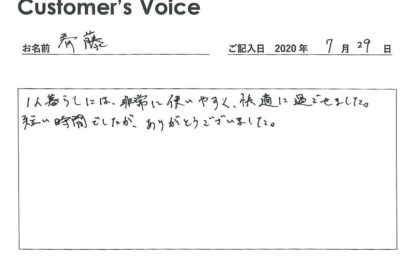 Customer's Voice
お名前 斉藤 ご記入日 2020年 7月29日
1人暮らしには、非常に使いやすく、快適に過ごせました。
短い時間でしたが、ありがとうございました。